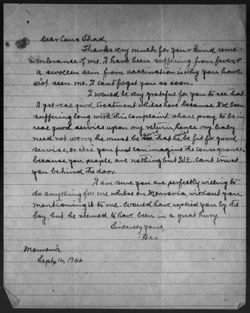 Dear Caro Shad,
Thanks very much for your kind reme-
mberance of me. I have been suffering from fever &
a swollen arm from vaccination is why you have
not seen me. I can't forget you so soon.
I would be very grateful for you to see that
I get real good treatment whiles here because I've been
suffering long with this complaint. Please pray to be in
real good service upon my return, hence my baby
need not worry he must be but fit for good
service, or else you just can imagine the consequences,
because you people are nothing but I.E. can't trust
you behind the door.
I am sure you are perfectly willing to
do anything for me whiles on Monrovia without you
mentioning it to me. Would have replied you by the
boy, but he seemed to have been in a great hury
Sincerely yours,
Monrovia
Sept. 16, 1942